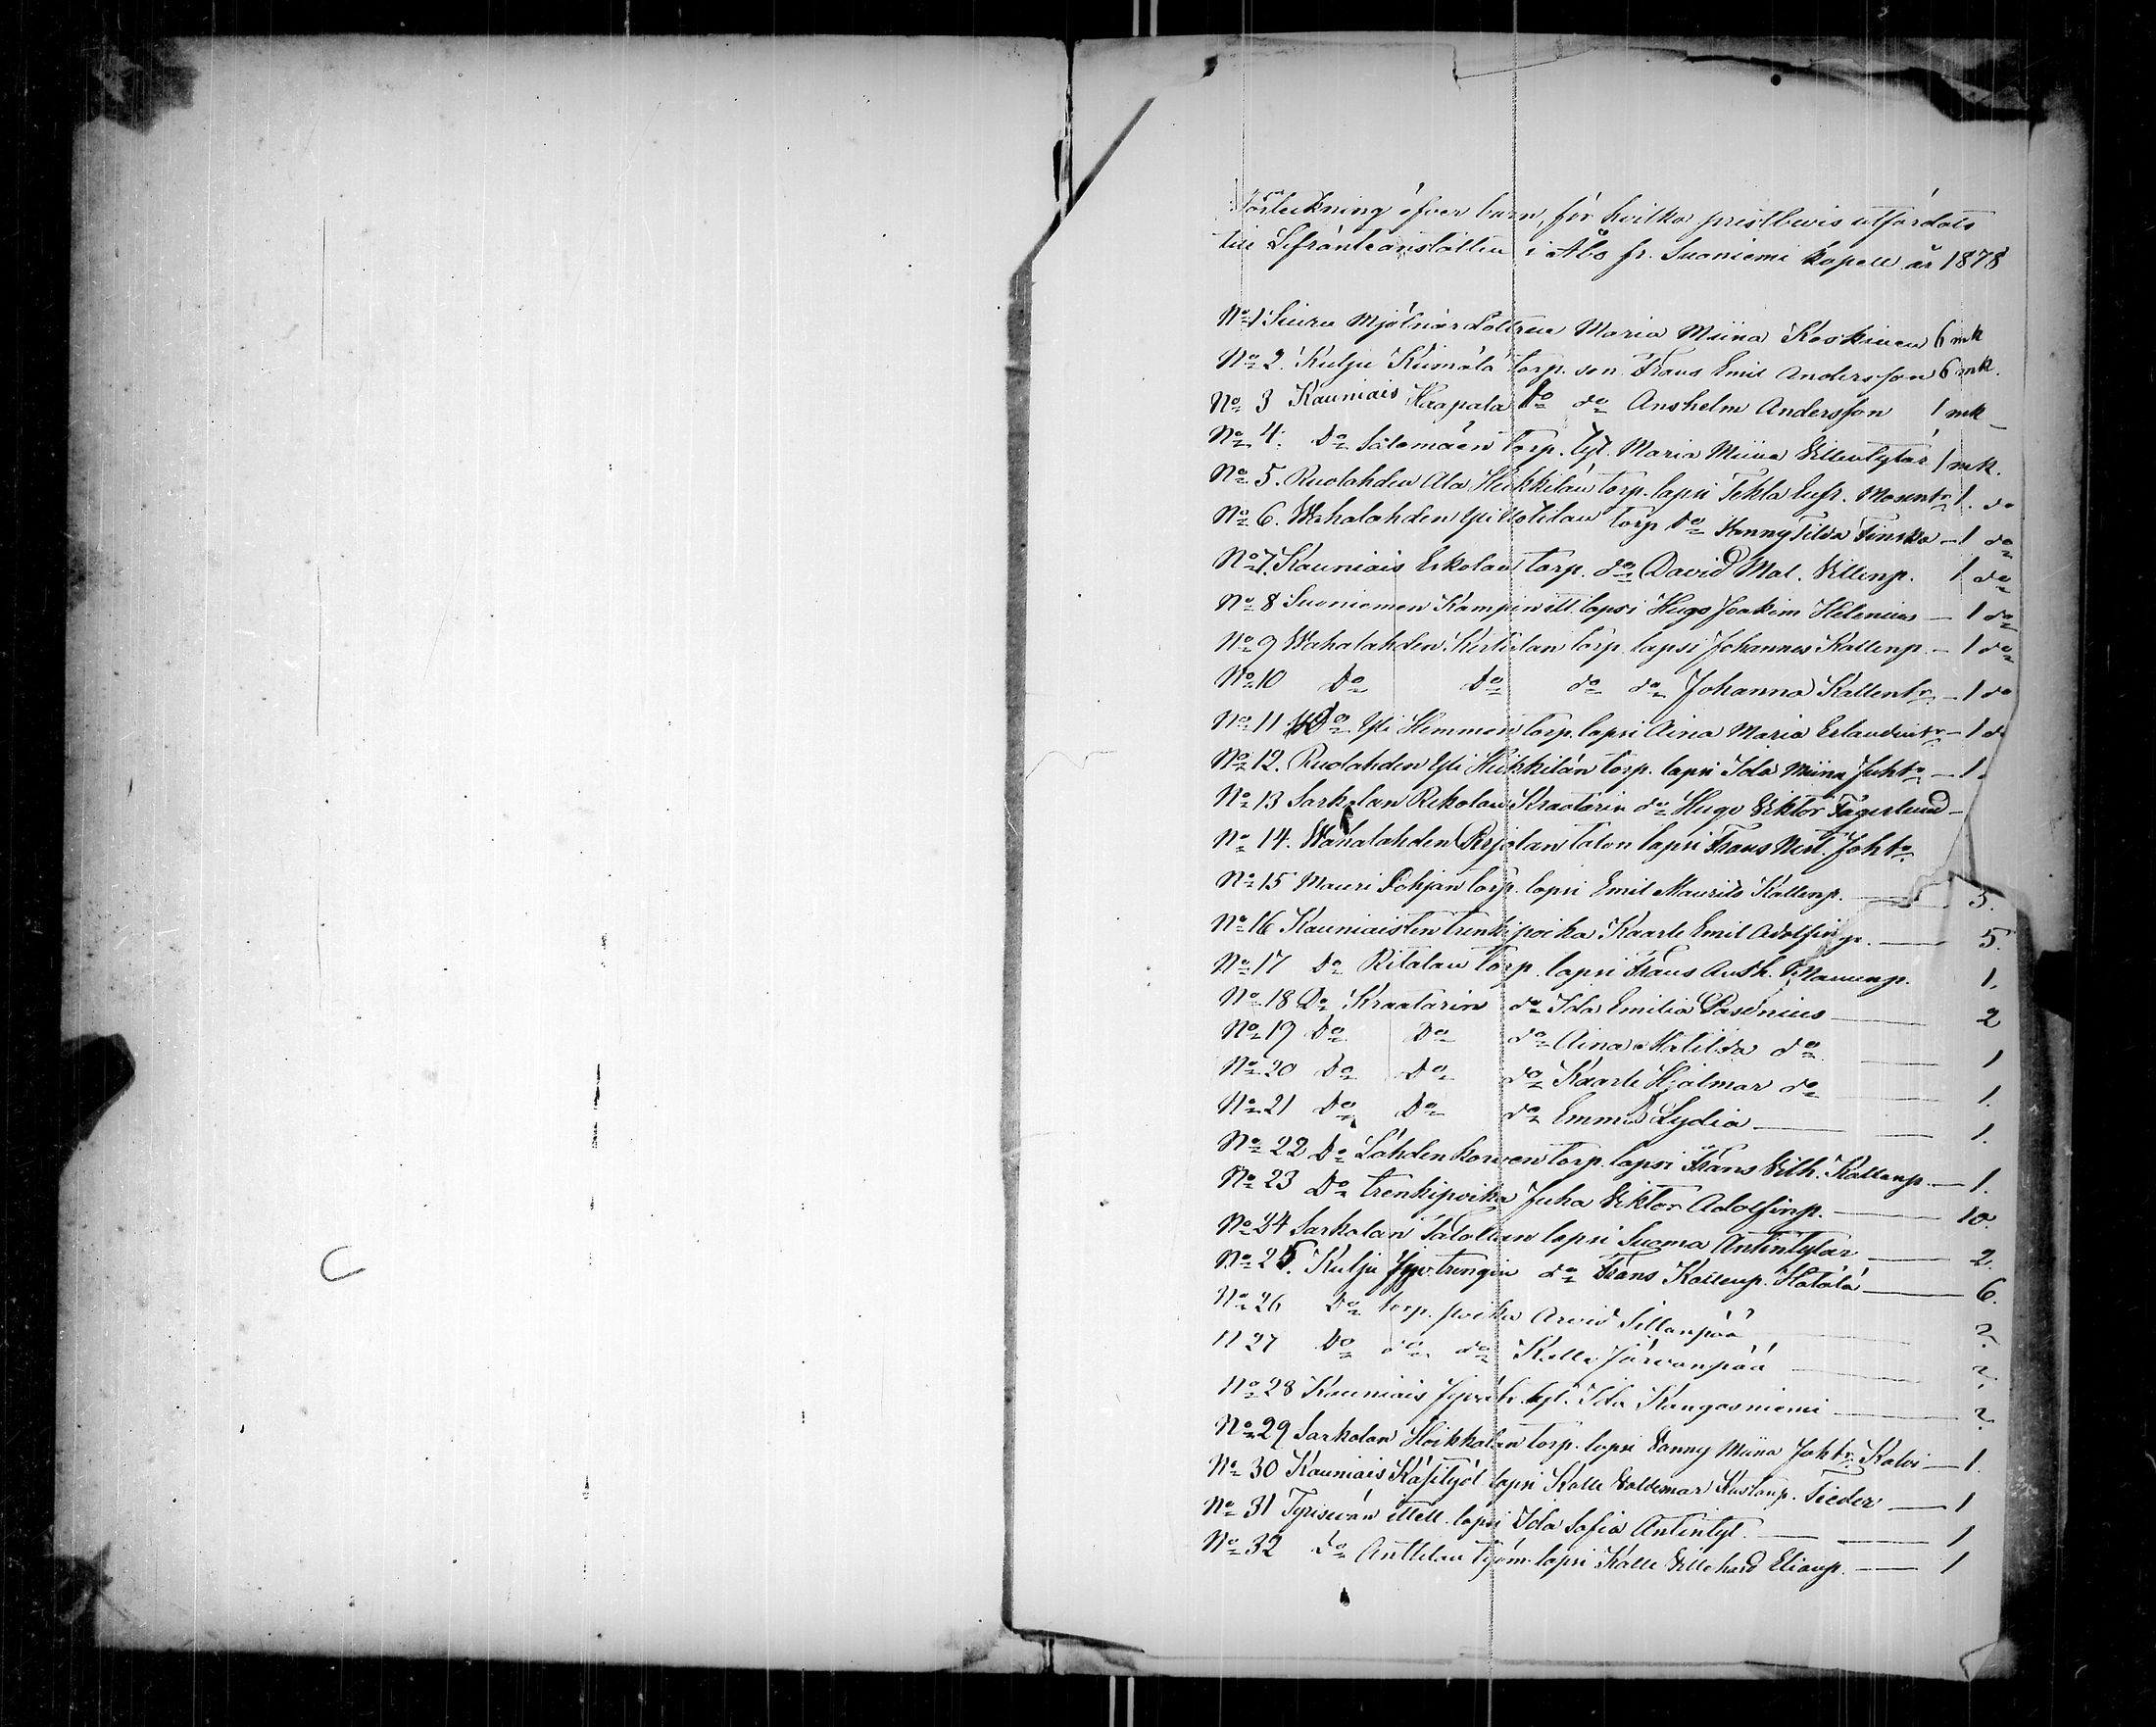 Förteckning öfver barn, för hvilka prestbevis utfärdats
till Lifränteanstalten i Åbo fr. Suoniemi Kapell år 1878
No 1 Siuru Mjölnardottren Maria Miina Koskinen 6 mk
No 2. Kulju Kiimala torp. son Frans Emil Andersson 6 mk.
No 3 Kauniais Haapala do do Anshelm Andersson 1 mk
No 4. Do Salomäen torp. tyt. Maria Miina Villentytär 1 mk.
No 5. Ruolahden Ala Heikkilän torp. lapsi Tekla Eufr. 1. do
No 6. Wahalahden Yli torp do Fanny Tilda Finska – 1 do
No 7. Kauniais Erkolan torp. do David Mat. Villenp. 1 do
No 8 Suoniemen Kampin itt. lapsi Hugo Joakim Helenius – 1 do
No 9 Wahalahden Kerttelan torp lapsi Johannes Kallenp. – 1 do
No 10 Do Do do do Johanna Kallentr – 1 do
No 11 Do Yli Hemmon torp. lapsi Aina Maria Erlandintr – 1 d
No 12. Ruolahden Yli Heikkilän torp. lapsi Ida Miina Juhtr – 1.
No 13 Sarkolan Rekolan Kraatarin do Hugo Viktor Fagerlund –
No 14. Wahalahden Perjolan talon lapsi Frans Joh
No 15 Mauri Pohjan torp. lapsi Emil Maurits Kallenp. 5.
No 16 Kauniaisten trenkipoika Kaarle Emil Adolfinp. 5.
No 17 Do Ritalan torp. lapsi Frans Mananp. 1.
No 18 Do Kraatarin do Ida Emilia Pasenius 2
No 19 Do Do do Aina Matilda do 1
No 20 Do Do do Kaarle Hjalmar do 1.
No 21 Do Do do Emma Lydia 1.
No 22 Do Lähdenkorven torp. lapsi Frans Vilh. Kallenp. – 1.
No 23 Do trenkipoika Juha Viktor Adolfinp. 10.
No 24 Sarkolan lapsi Suoma Antintytär 2.
No 25. Kulju trengin do Frans Kallenp. Hatala 6.
No 26 Do torp. poika Arvid Sillanpää 2.
N 27 Do do do Kalle Järvanpää 2.
No 28 Kauniais tyt. Ida Kangasniemi 2
No 29 Sarkolan Hoikkalan torp. lapsi Fanny Miina Johtr Kalvi – 1.
No 30 Kauniais Käsityöl lapsi Kalle Valdemar Kustanp. Fieder 1
No 31 Tyrisevän ittell. lapsi Ida Sofia Antintyt. 1
No 32 do Anttilan työm. lapsi Kalle Villehard Elianp. 1